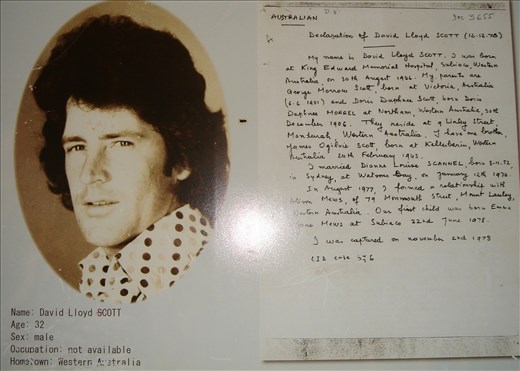 AUSTRALIAN
Declaration of David Lloyd SCOTT (16.12.78)
My name is David Lloyd SCOTT. I was born
at King Edward Memorial Hospital, Subiaco, Western
Australia, on 30th August 1946. My parents are
George Morrow Scott, born at Victoria, Australia
and Doris Daphnee Scott, born Doris
Daphnee at Northam, Western Australia, 30th
December 1926. They reside at 9 Linley Street,
Mandurah, Western Australia. I have one brother,
James Ogilvie Scott, born at Kellerberin, Western
Australia 24th February 1943.
I married Dianne Louise SCANNEL, born
in Sydney, at Watsons Bay, on January 1976.
In August 1977, I formed a relationship with
Mews, of 79 Monmouth Street, Mount Lawley,
Western Australia. Our first child was born
Mews at Subiaco 22nd June 1978.
I was captured on november 2nd 1978
Name: David Lloyd SCOTT
Age: 32
Sex: male
Occupation: not available
Hometown: Western Australia